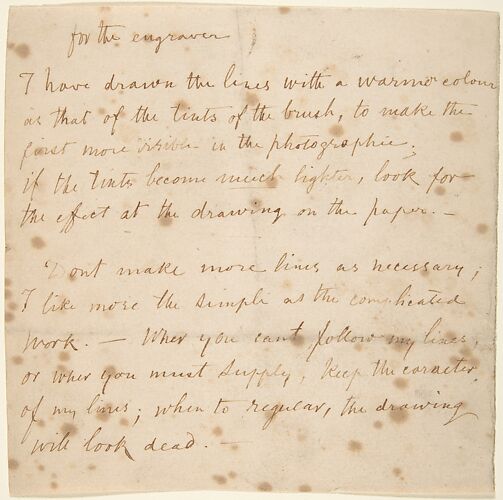 for the engraver
I have drawn the lines with a warmer colour
as that of the tints of the brush, to make the
first more visible in the photographie;
if the tints become much lighter, look for
the effect at the drawing on the paper. —
Dont make more lines as necessary;
I like more the simple as the complicated
work. — Wher you cant follow my lines,
or wher you must supply, Keep the caracter
of my lines; when to regular, the drawing
will look dead. —